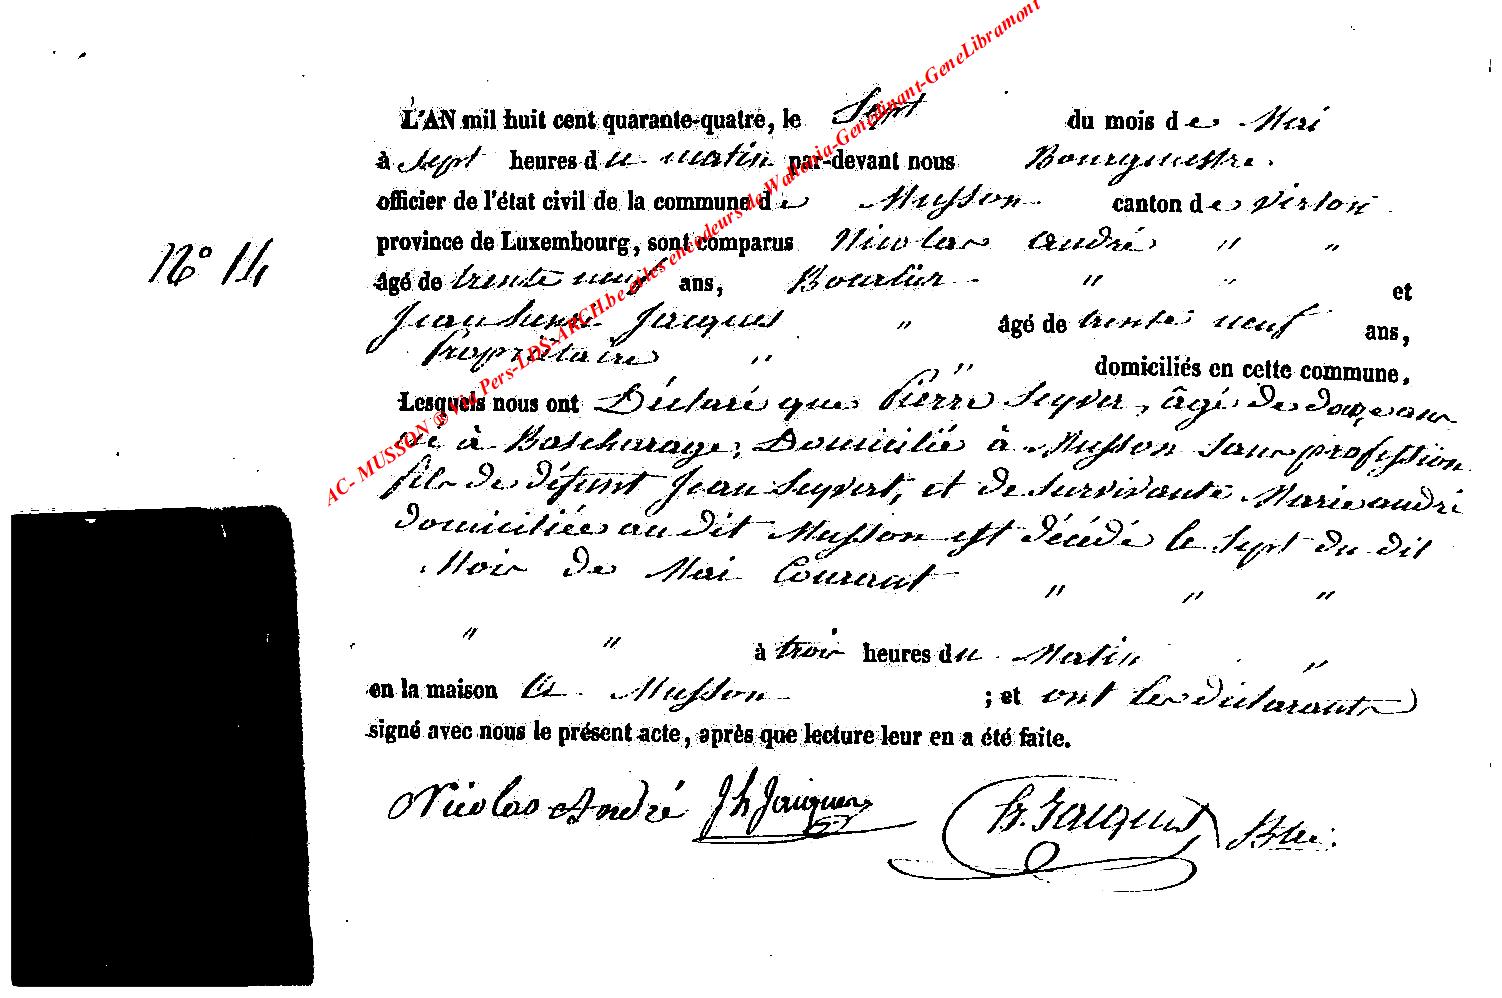 AC- MUSSON ® Via Pers-LDS-ARCH.be et les encodeurs de Wallonia-Genedinant-GeneLibramont
L'AN mil huit cent quarante-quatre, le Sept du mois de Mai
à sept heures du matin par-devant nous Bourgmestre.
officier de l'état civil de la commune de Musson canton de virton
province de Luxembourg, sont comparus Nicolas andré " "
N° 14
âgé de trente neuf ans, Bourlier " " et
Jean Jacques " âgé de trente neuf ans,
Propriétaire " " domiciliés en cette commune.
Lesquels nous ont Déclaré que Pierre Seyver, âgé de douze ans
né à Bascharage, Domicilié à Musson sans profession
fils de défunt Jean Seyvert, et de survivante Marie andré
domiciliée au dit Musson est décédé le sept du dit
Mois de Mai Courant " " "
" " à trois heures du Matin "
en la maison à Musson ; et ont les déclarants
signé avec nous le présent acte, après que lecture leur en a été faite.
Nicolas André Jh Jacques Jacques